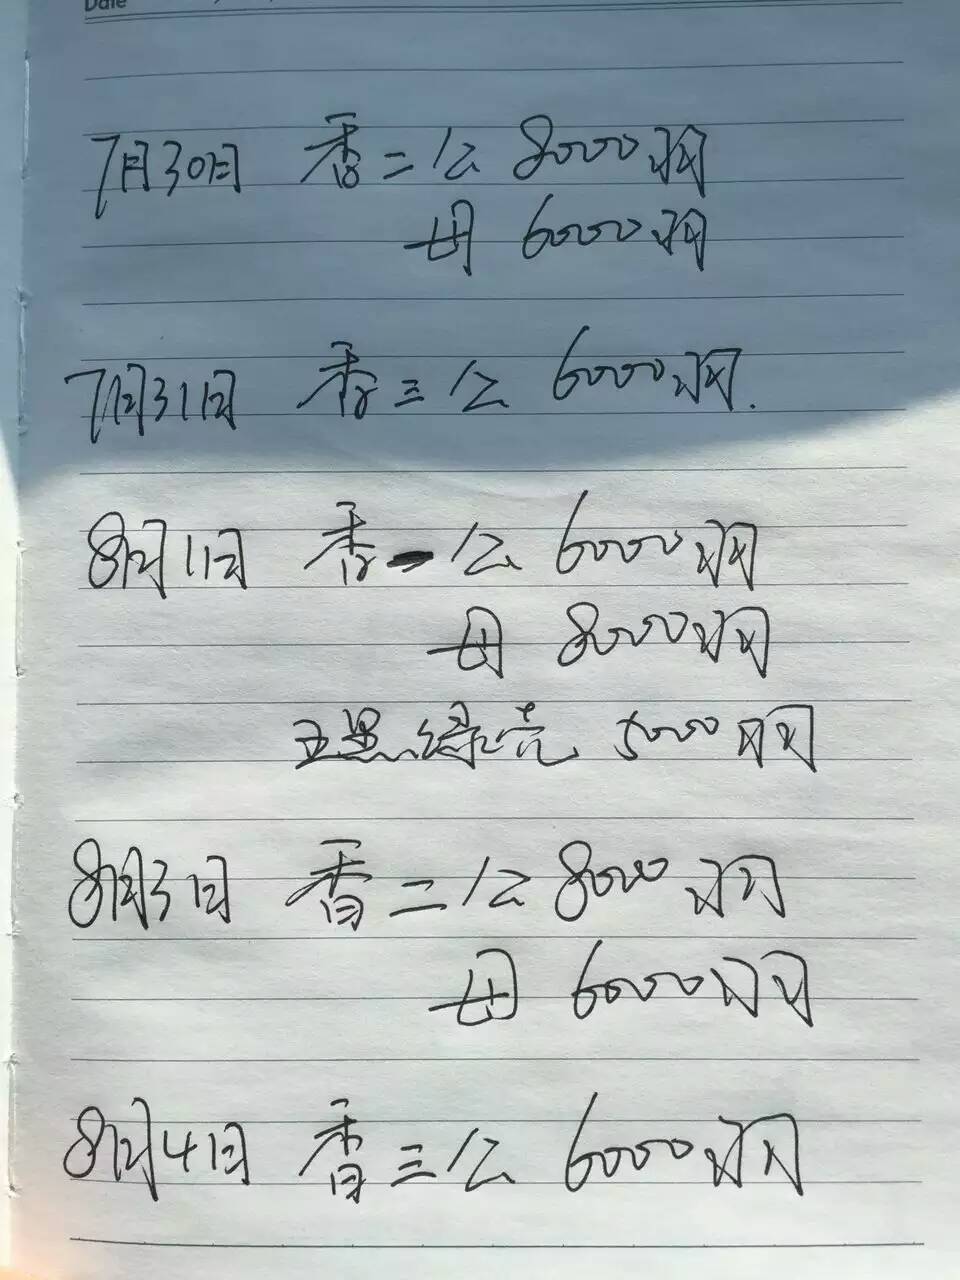 Date
7月30日 香二公 8000羽
母 6000羽
7月31日 香三公 6000羽.
8月1日 香一公 6000羽
母 8000羽
五黑绿壳 5000羽
8月3日 香二公 8000羽
母 6000羽
8月4日 香三公 6000羽